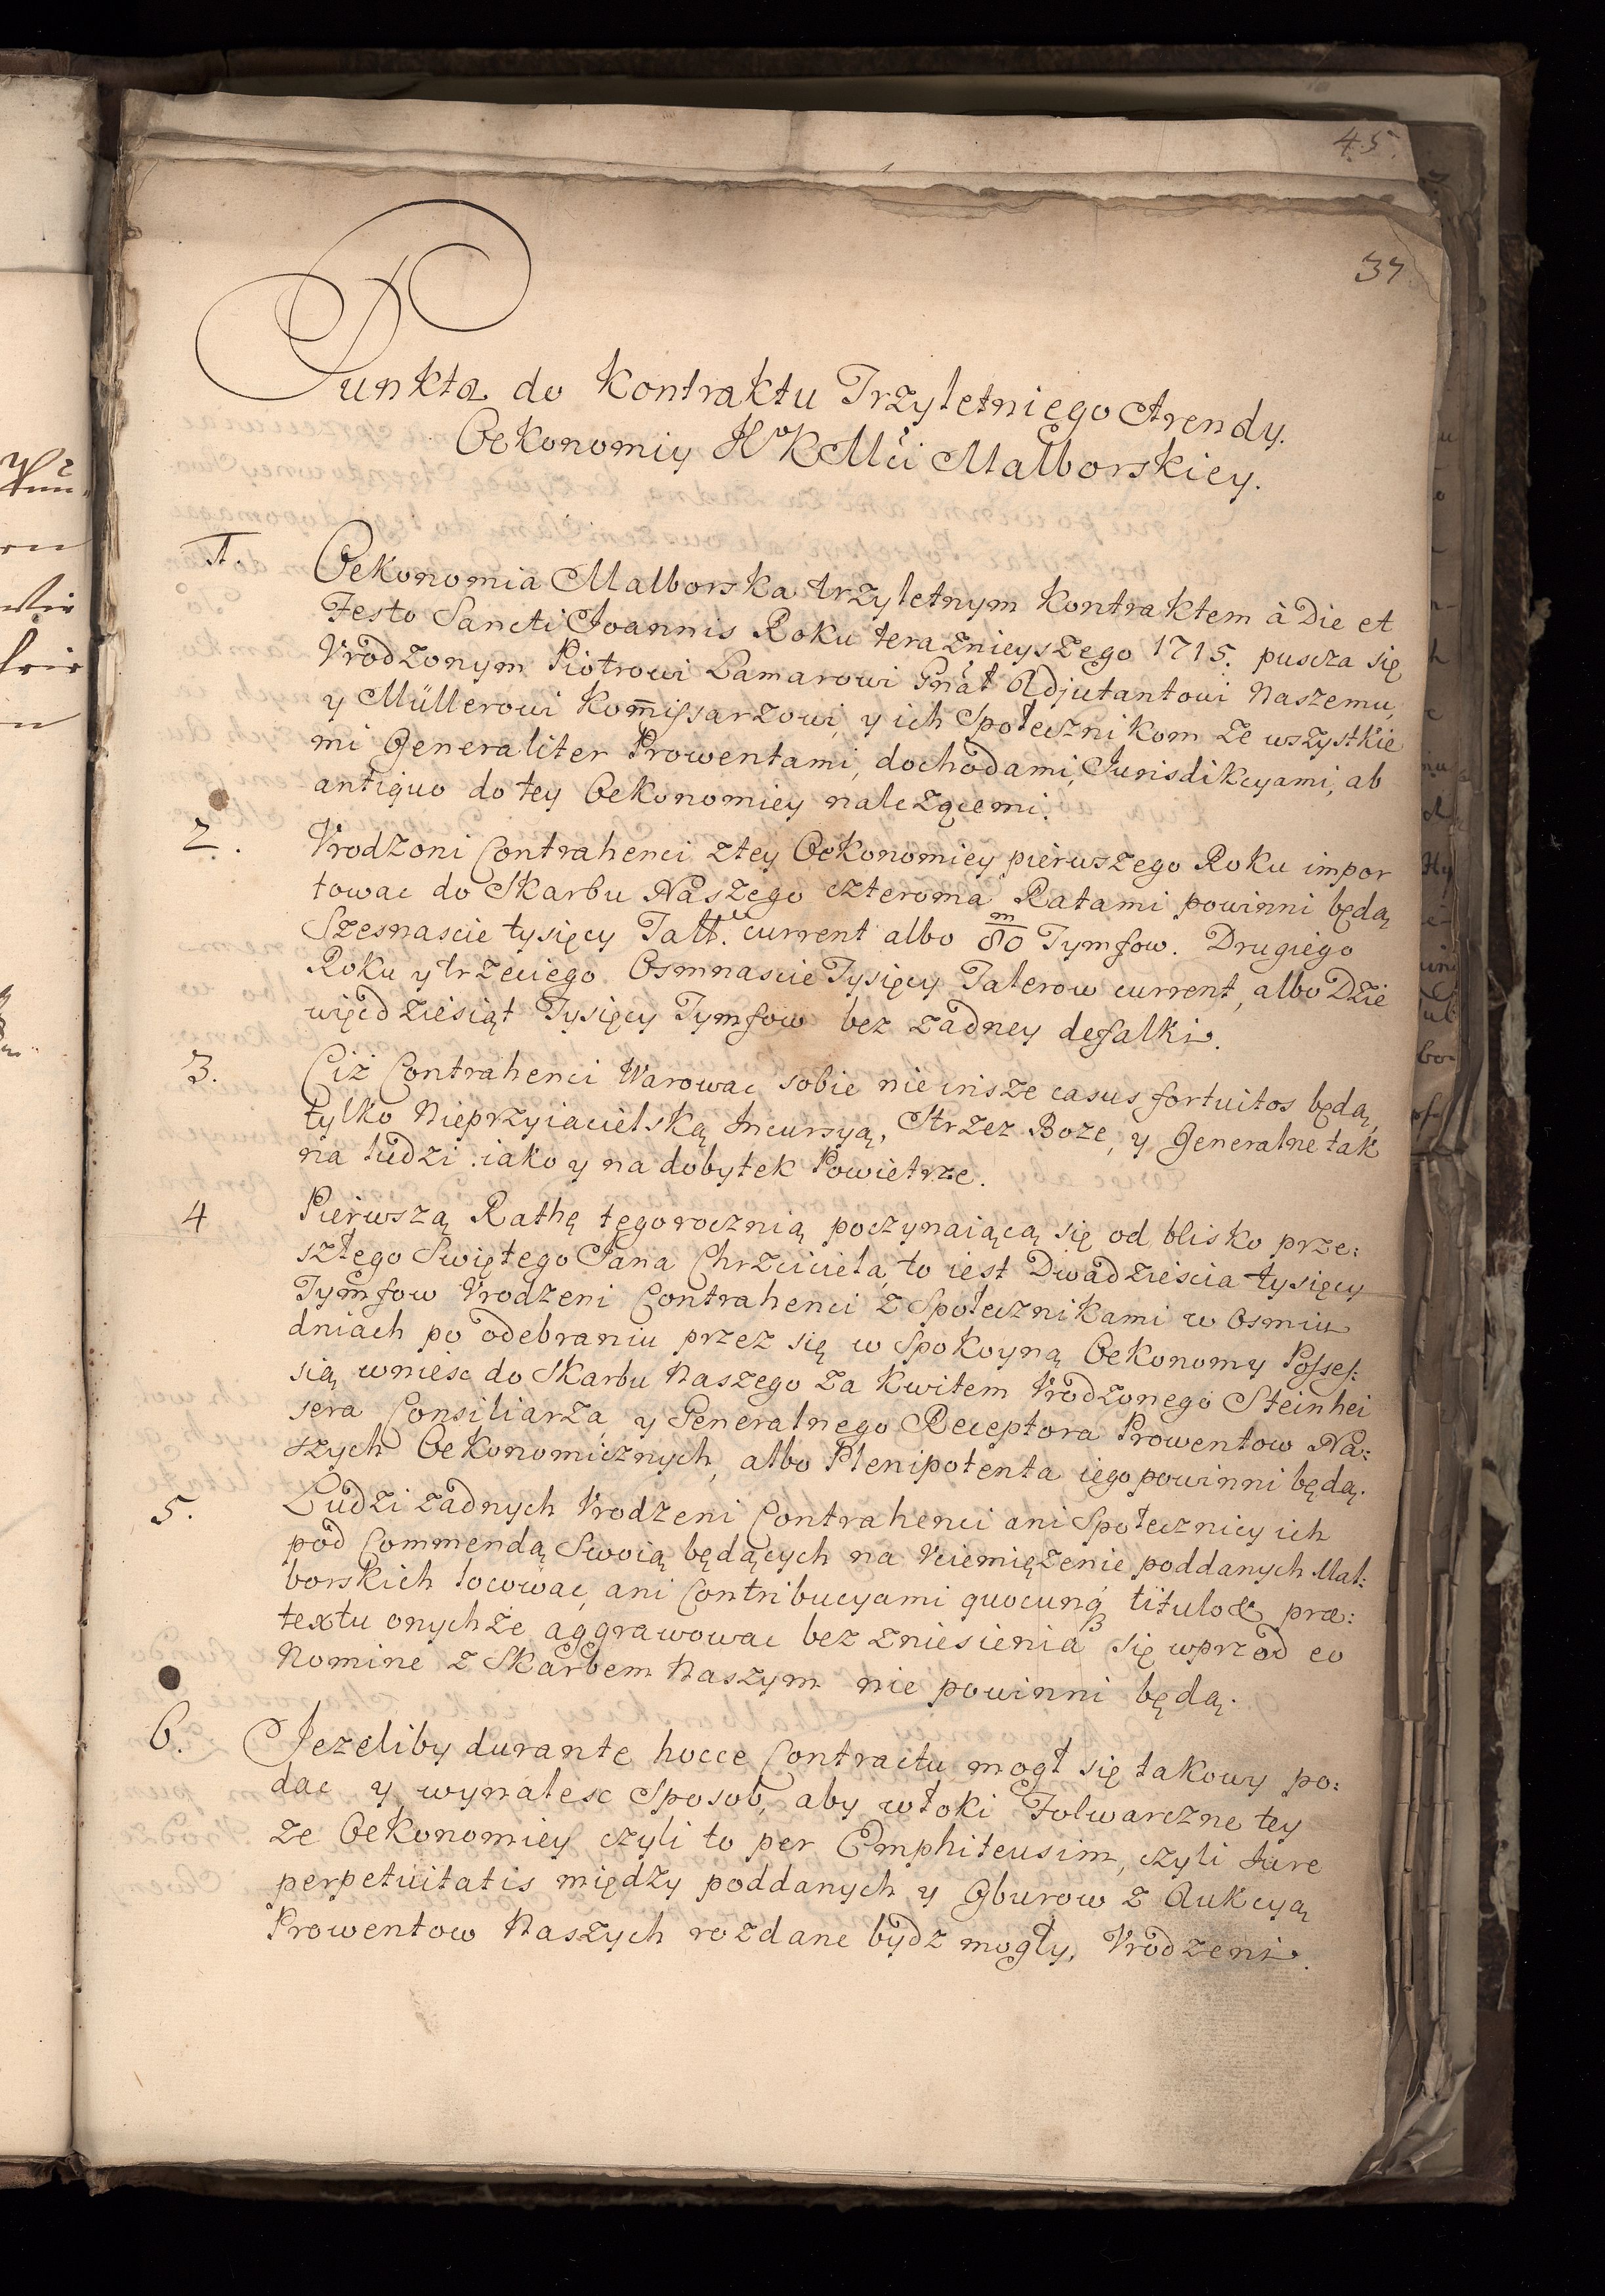 45.
37
Punkta do Kontraktu Trzyletniego Arendy.
Oekonomiy JKMci Malborskiey.
1. Oekonomia Malborska trzyletnym Kontraktem à Die et
Festo Sancti Joannis Roku teraznieyszego 1715. puscza się
Vrodzonym Piotrowi Lamarowi Gnãł Adjutantowi Naszemu,
y Müllerowi Kom̃issarzowi, y ich Społecznikom ze wszystkie
mi Generaliter Prowentami, dochodami, Jurisdikcyami, ab
antiquo do tey Oekonomiey należącemi.
2. Vrodzoni Contrahenci z tey Oekonomiey pierwszego Roku impor
towac do Skarbu Naszego czteroma Ratami powinni będą
Szesnascie tysięcy Tall. current albo 80 m Tymfow. Drugiego
Roku y trzeciego Osmnascie Tysięcy Talerow current, albo Dzie
więcdziesiąt Tysięcy Tymfow bez zadney defalki.
3. Ciż Contrahenci Warowac sobie nie insze casus fortuitos będą,
tylko Nieprzyiacielską Incursyą, Strzez Boze, y Generalne tak
na ludzi iako y na dobytek Powietrze.
4 Pierwszą Rathę tegorocznią poczynaiącą się od blisko prze:
szłego Swiętego Jana Chrzciciela, to iest Dwadziescia tysięcy
Tymfow Vrodzeni Contrahenci z Społecznikami w Osmiu
dniach po odebraniu przez się w Spokoyną Oekonomy Posses:
sią wniesc do Skarbu Naszego za Kwitem Vrodzonego Steinhei
sera Consiliarza, y Generalnego Receptora Prowentow Na:
szych Oekonomicznych, albo Plenipotenta iego powinni będą.
5. Ludzi zadnych Vrodzeni Contrahenci ani Społecznicy ich
pod Commendą Swoią będących na Vciemięzenie poddanych Mal:
borskich locowac, ani Contribucyami quocunq titulo & præ:
textu onychże aggrawowac bez zniesienia się wprzod eo
Nomine z Skarbem Naszym nie powinni będą.
6. Jezeliby durante hocce Contractu mogł się takowy po:
dac y wynalesc Sposob, aby włoki Folwarczne tey
ze Oekonomiey czyli to per Emphiteusim, czyli Jure
perpetuitatis między poddanych y Gburow z Aukcyą
Prowentow Naszych rozdane bydz mogły, Vrodzeni.